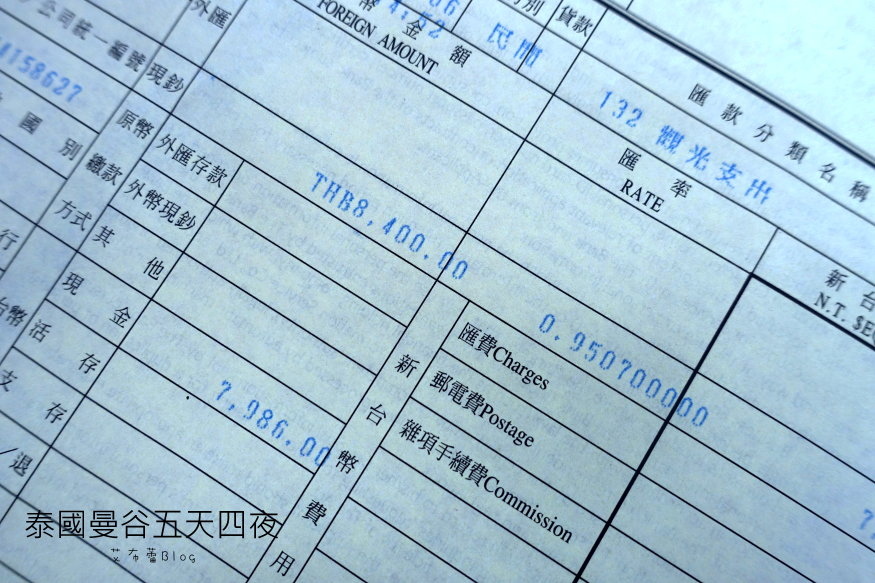 外匯
幣金額
FOREIGN AMOUNT
民間
別
貨款
匯款分類名稱
132 觀光支出
公司統一編號
現鈔
58627
國別
原幣
繳款
方式
外匯存款
外幣現鈔
其他
THB8,400.00
匯率
RATE
0.950700000
新台
N.T. $EQ
行
台幣
現金
活存
支存
退
7,986.00
新台幣費用
匯費Charges
郵電費Postage
雜項手續費Commission
泰國曼谷五天四夜
艾布蕾Blog